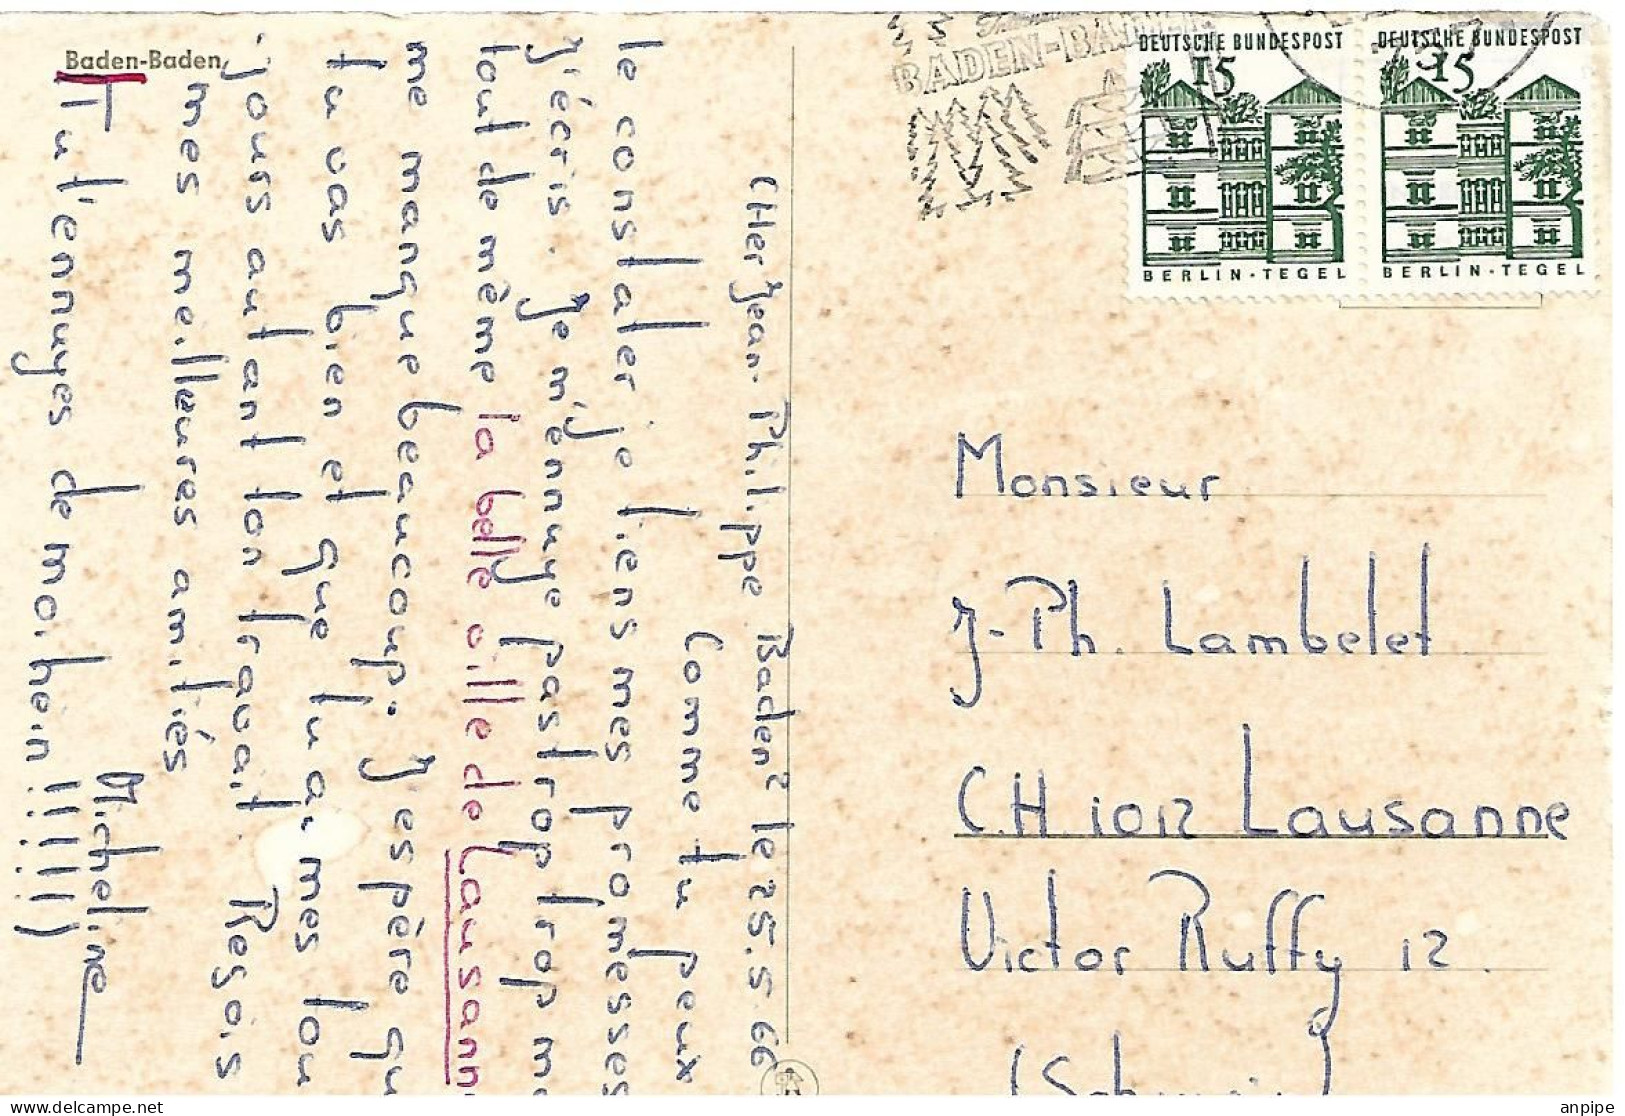 Baden-Baden
BADEN-BADEN
DEUTSCHE BUNDESPOST
15
BERLIN-TEGEL
DEUTSCHE BUNDESPOST
15
BERLIN-TEGEL
Baden² le 25.5.66
CHer Jean-Philippe
Comme tu peux
le constater je tiens mes promesses
j'écris. Je m'ennuye pas trop
tout de même la belle ville de Lausann
me manque beaucoup. J'espère qu
tu vas bien et que tu a
jours autant ton travail. Reçois
mes meilleures amitiés
Micheline
Tu t'ennuyes de moi hein !!!!!)
Monsieur
J-Ph. Lambelet
C.H. 1012 Lausanne
Victor Ruffy 12.
anpipe